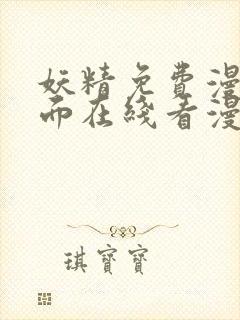 妖精免費漫
而在綫看漫
琪寶寶